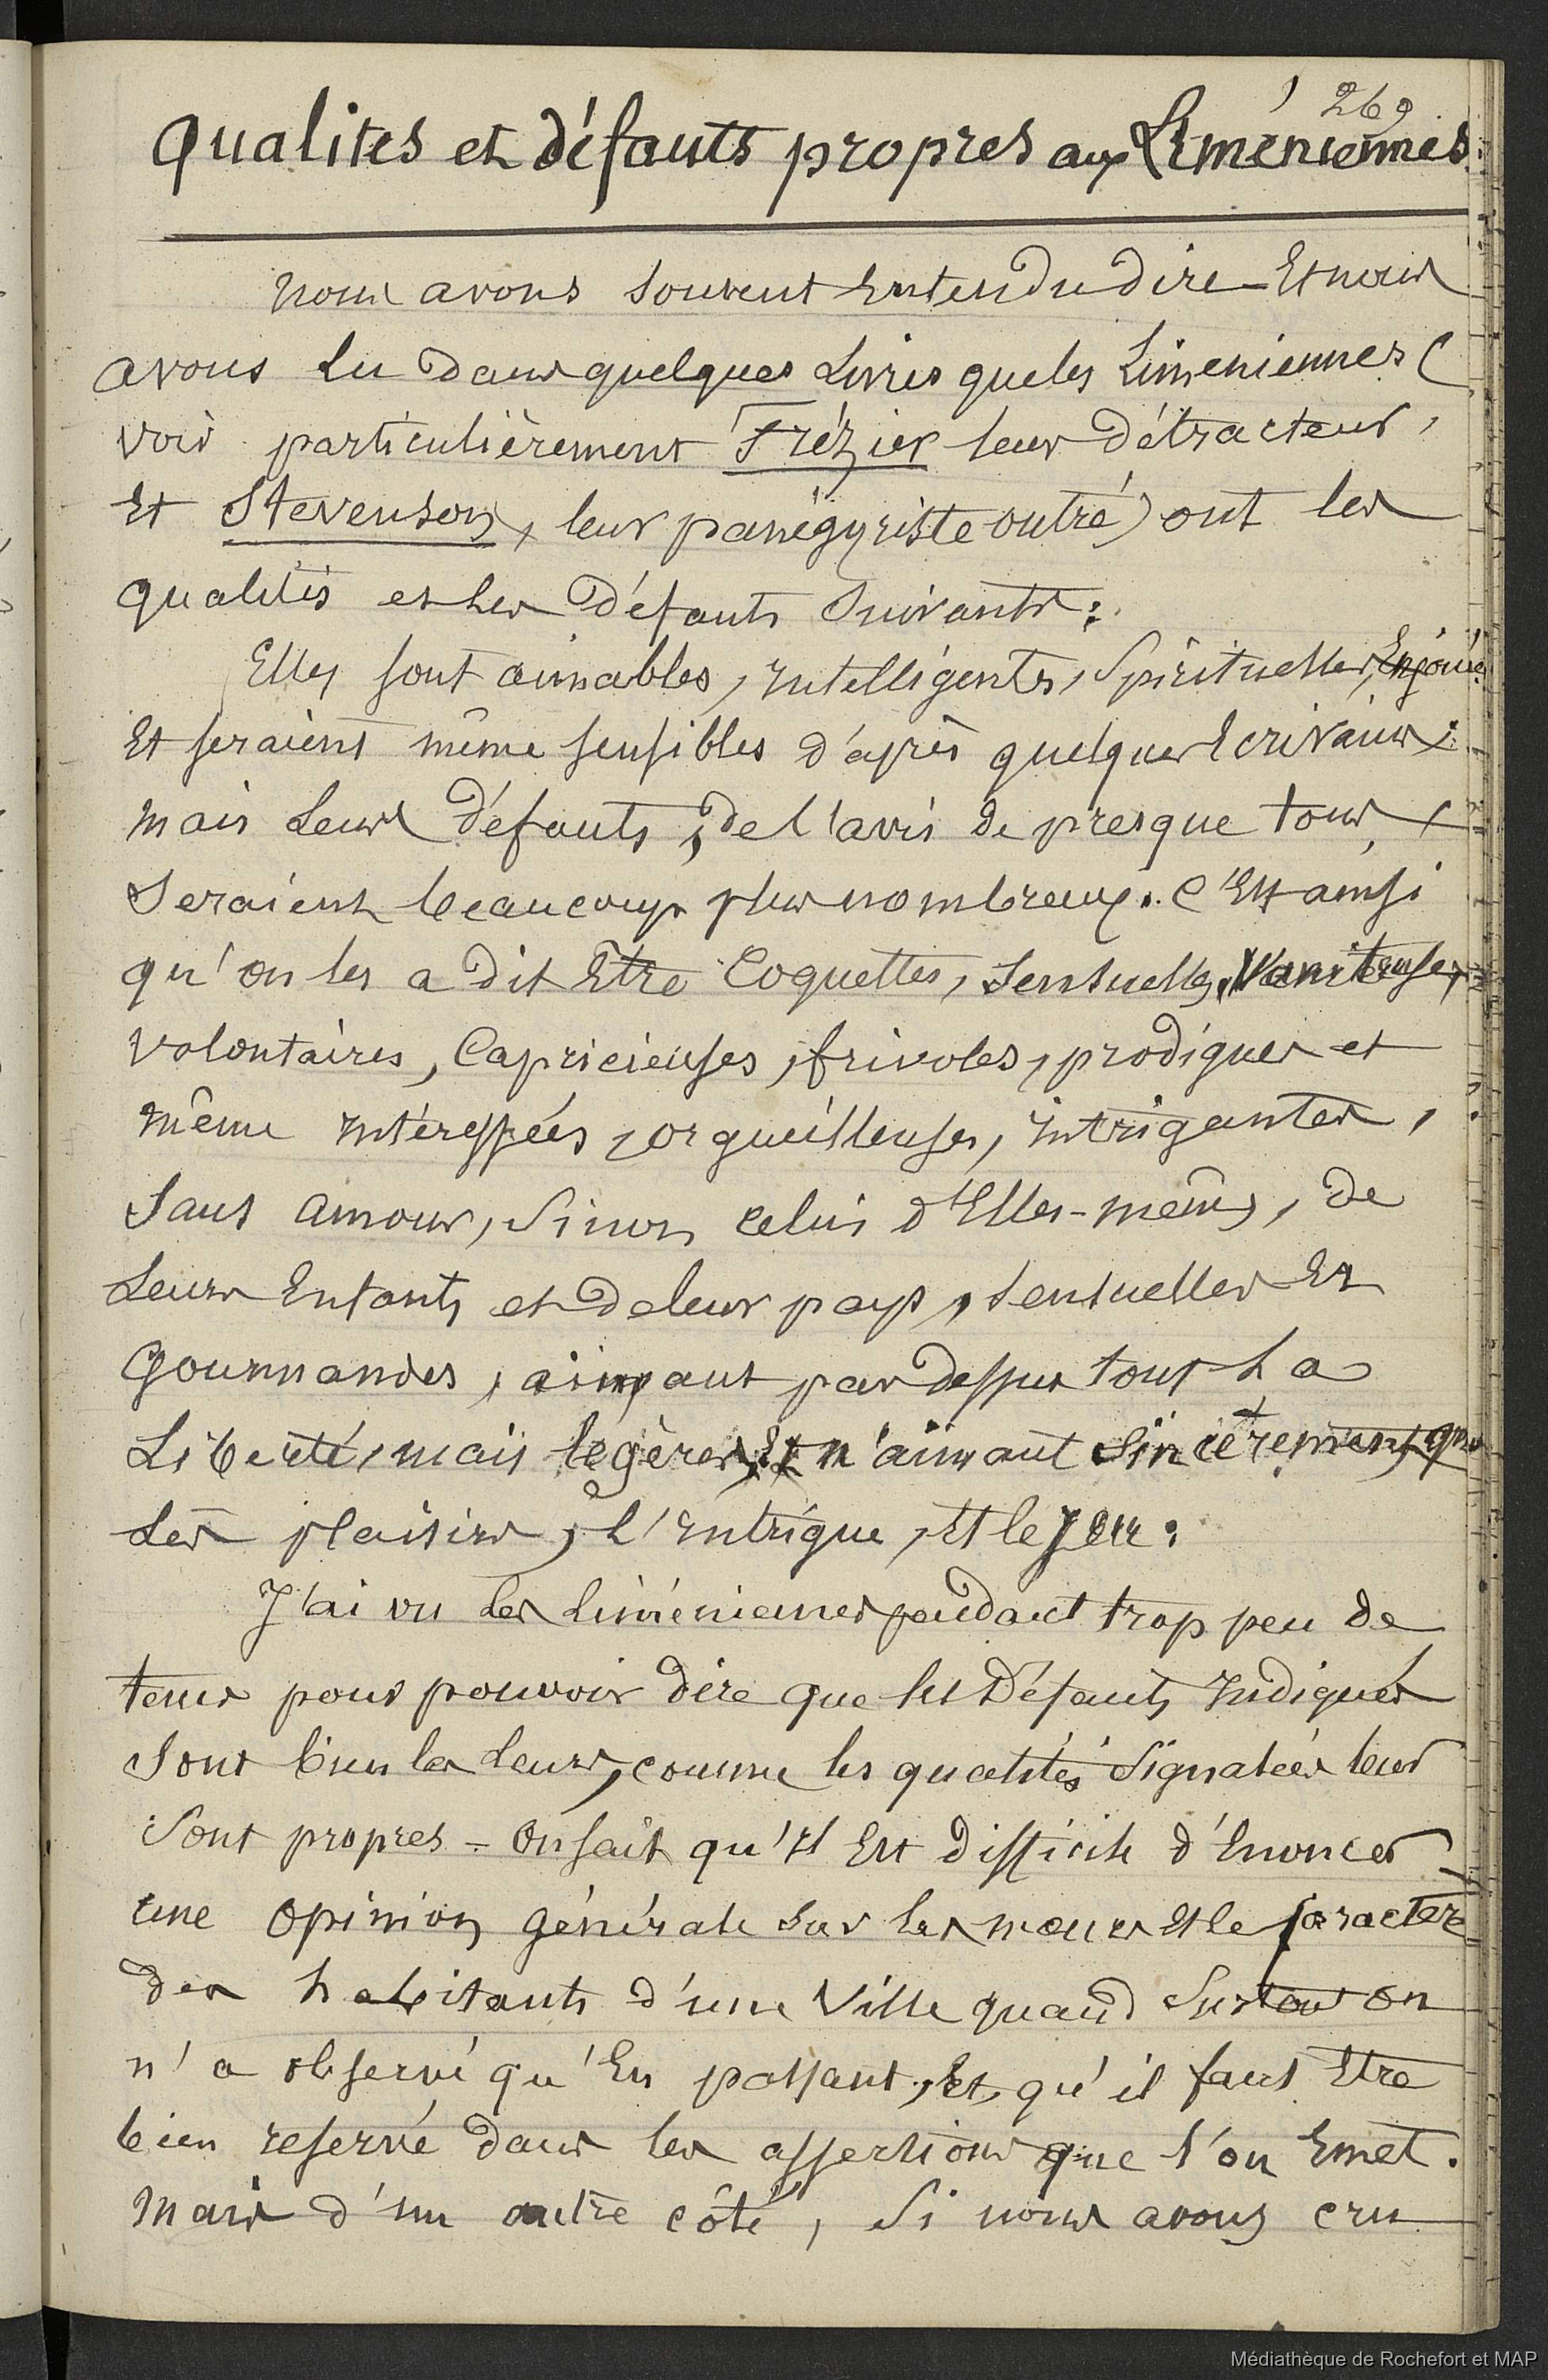 269
Qualités et défauts propres aux Liméniennes.
Nous avons souvent Entendu dire - Et nous
avons Lu dans quelques Livres que les Liméniennes (
voir particulièrement Frézier leur détracteur,
Et Stevenson, leur panégyriste outré) ont les
qualités et les Défauts Suivants :
Elles sont aimables, Intelligentes, Spirituelles, Enjouées
Et seraient même sensibles d'après quelques Ecrivains ;
mais Leurs Défauts, de l'avis de presque tous,
Seraient beaucoup plus nombreux. C'Est ainsi
qu'on les a dit Être Coquettes, Sensuelles, Vaniteuses,
volontaires, Capricieuses, frivoles, prodigues et
même Intéressées, orgueilleuses, Intrigantes,
Sans amour, Sinon celui d'Elles-mêmes, de
Leurs Enfants et de leur pays, Sensuelles Et
Gourmandes, aimant par dessus tout La
Liberté, mais légères, Et n'aimant Sincèrement que
Les plaisirs, L'Intrigue, Et le Jeu.
J'ai vu Les Liméniennes pendant trop peu de
tems pour pouvoir dire que les Défauts Indiqués
Sont bien les Leurs, comme les qualités Signalées leur
Sont propres - On sait qu'Il Est Difficile d'Enoncer
une opinion générale Sur Les mœurs Et le caractère
des habitants d'une Ville quand Surtout on
n'a observé qu'En passant, Et qu'il faut Etre
bien reservé dans les assertions que l'on Emet.
Mais d'un autre côté, Si nous avons cru
Médiathèque de Rochefort et MAP